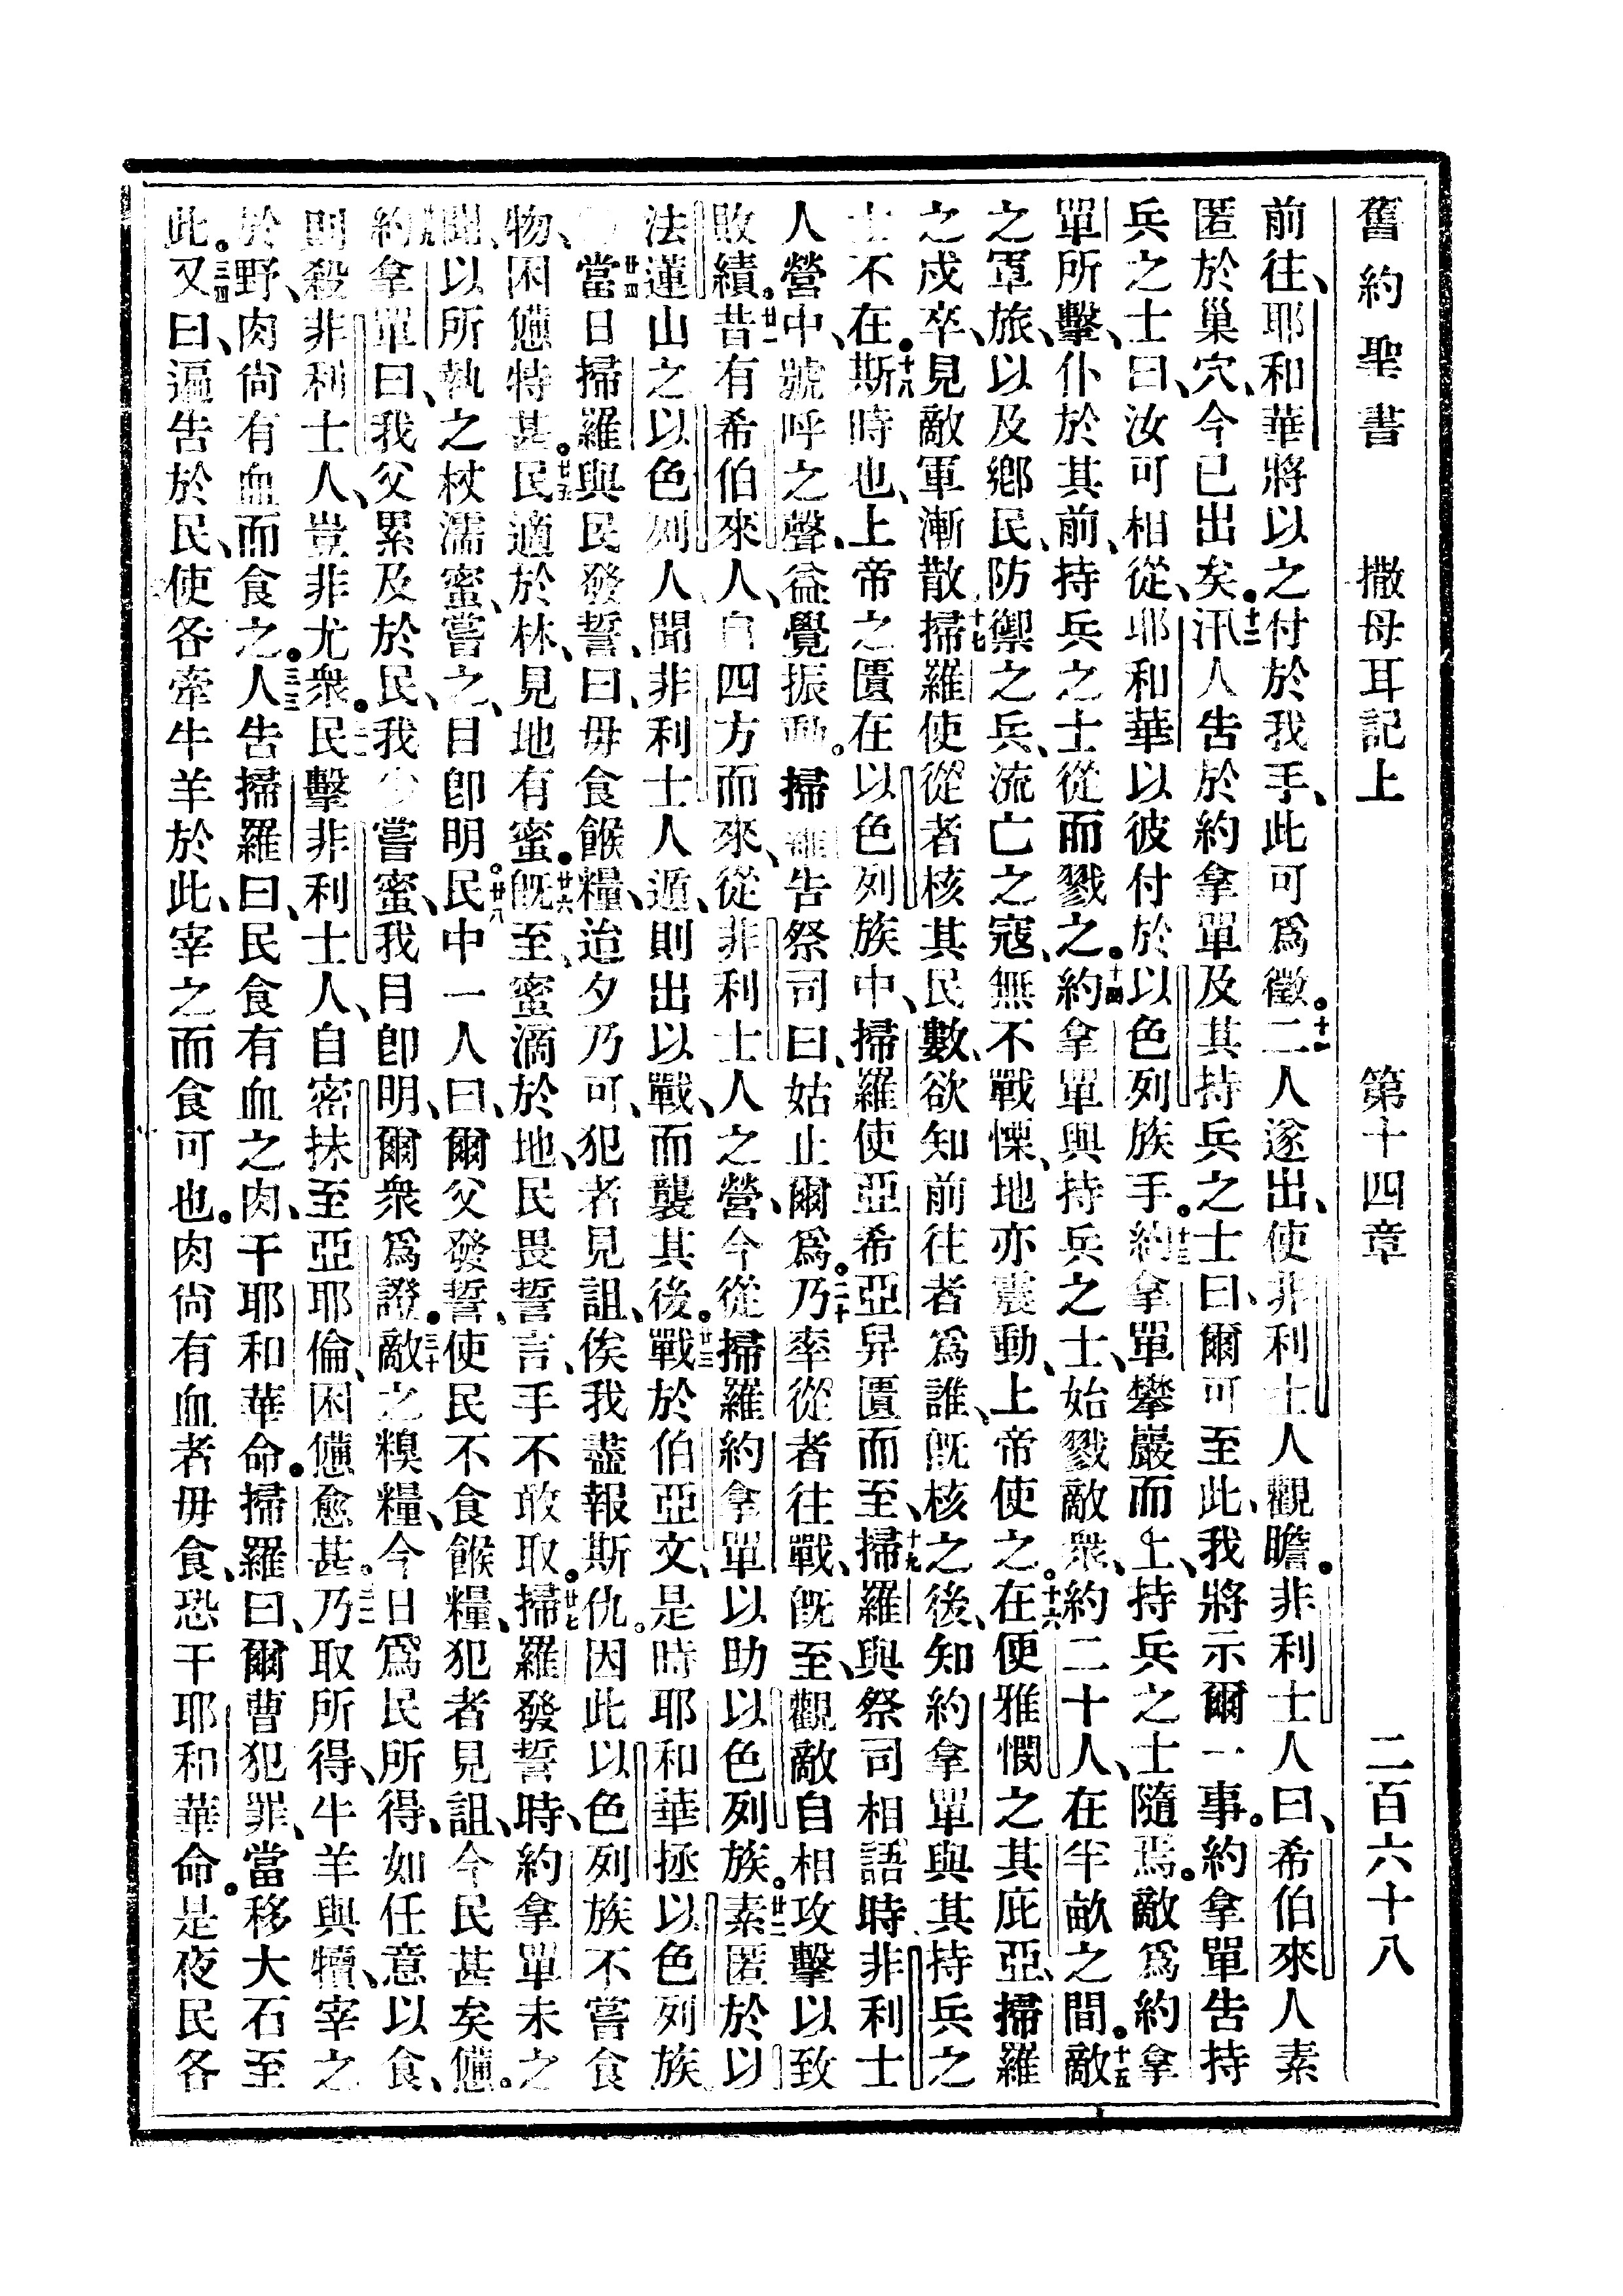 舊約聖書 撒母耳記上 第十四章 二百六十八
前往、耶和華將以之付於我手、此可爲徵。十一二人遂出、使非利士人觀瞻。非利士人曰、希伯來人素
匿於巢穴、今已出矣。十二汛人告於約拿單及其持兵之士曰、爾可至此、我將示爾一事。約拿單告持
兵之士曰、汝可相從、耶和華以彼付於以色列族手。十三約拿單攀巖而上、持兵之士隨焉。敵爲約拿
單所擊、仆於其前、持兵之士從而戮之。十四約拿單與持兵之士、始戮敵衆、約二十人、在半畝之間。十五敵
之軍旅、以及鄉民、防禦之兵、流亡之寇、無不戰慄、地亦震動、上帝使之。十六在便雅憫之其庇亞、掃羅
之戍卒、見敵軍漸散、十七掃羅使從者核其民數、欲知前往者爲誰、旣核之後、知約拿單與其持兵之
士不在。十八斯時也、上帝之匱在以色列族中、掃羅使亞希亞舁匱而至、十九掃羅與祭司相語時、非利士
人營中、號呼之聲、益覺振動。掃羅告祭司曰、姑止爾爲。二十乃率從者往戰、旣至、觀敵自相攻擊以致
敗績。廿一昔有希伯來人、自四方而來、從非利士人之營、今從掃羅約拿單以助以色列族。廿二素匿於以
法蓮山之以色列人聞非利士人遁、則出以戰、而襲其後。廿三戰於伯亞文、是時耶和華拯以色列族
廿四當日掃羅與民發誓、曰、毋食餱糧、迨夕乃可、犯者見詛、俟我盡報斯仇。因此以色列族不嘗食
物、困憊特甚。廿五民適於林、見地有蜜。廿六旣至、蜜滴於地、民畏誓言、手不敢取。廿七掃羅發誓時、約拿單未之
聞、以所執之杖濡蜜、嘗之、目卽明。廿八民中一人曰、爾父發誓、使民不食餱糧、犯者見詛、今民甚矣憊。
約拿單曰、我父累及於民、我少嘗蜜、我目卽明、爾衆爲證。三十敵之糗糧、今日爲民所得、如任意以食、
則殺非利士人、豈非尤衆。三一民擊非利士人、自密抹至亞耶倫、困憊愈甚。三二乃取所得、牛羊與犢、宰之
於野、肉尙有血而食之。三三人告掃羅曰、民食有血之肉、干耶和華命。掃羅曰、爾曹犯罪、當移大石至
此。三四又曰、遍告於民、使各牽牛羊於此、宰之而食可也。肉尙有血者毋食、恐干耶和華命。是夜民各